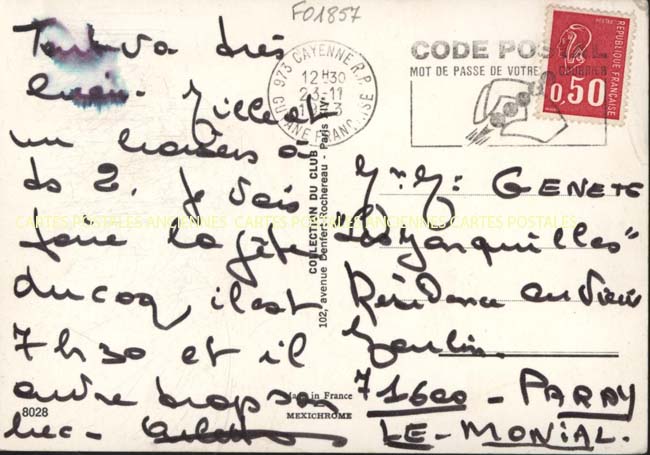 F01857
Tout va très
bien. Juillet
un
ds 2. je vais
faire la fête
du coq il est
7 h 30 et il
ouvre trop son
bec -
973 CAYENNE R.P.
12H30
23-11
GUYANE FRANÇAISE
CODE POSTAL
MOT DE PASSE DE VOTRE COURRIER
REPUBLIQUE FRANÇAISE
0,50
COLLECTION DU CLUB
102, avenue Denfert-Rochereau - Paris XIV
CARTES POSTALES ANCIENNES CARTES POSTALES ANCIENNES CARTES POSTALES
Mr Me GENETE
"Les Jonquilles"
Résidence au Vieux
Moulin.
71600 - PARAY
LE - MONIAL.
8028
Made in France
MEXICHROME